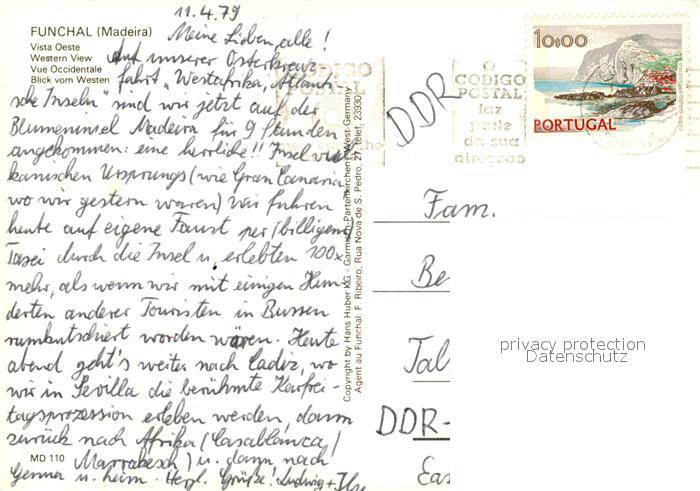 11.4.79
FUNCHAL (Madeira)
Vista Oeste
Western View
Vue Occidentale
Blick vom Westen
Meine Lieben alle!
Auf unserer Osterkreuz-
fahrt "Westafrika, Atlanti-
sche Inseln" sind wir jetzt auf der
Blumeninsel Madeira für 9 Stunden
angekommen: eine herrliche!! Insel vul-
kanischen Ursprungs (wie Gran Canaria,
wo wir gestern waren) Wir fuhren
heute auf eigene Faust per (billigem)
Taxi durch die Insel u. erlebten 100x
mehr, als wenn wir mit einigen Hun-
derten anderer Touristen in Bussen
rumkutschiert worden wären. Heute
abend geht's weiter nach Cadiz, wo
wir in Sevilla die berühmte Karfrei-
tagsprozession erleben werden, dann
zurück nach Afrika (Casablanca/
Marrakesch) u. dann nach
Genua u. heim. Herzl. Grüße! Ludwig +
MD 110
Copyright by Hans Huber KG - Garmisch-Partenkirchen / West-Germany
Agent au Funchal: F. Ribeiro, Rua Nova de S. Pedro, 27, telef. 23930
CODIGO
POSTAL
DDR
O
CODIGO
POSTAL
faz
parte
da sua
direcção
10$00
PORTUGAL
Fam.
Be
Tal
DDR-
Eas
privacy protection
Datenschutz